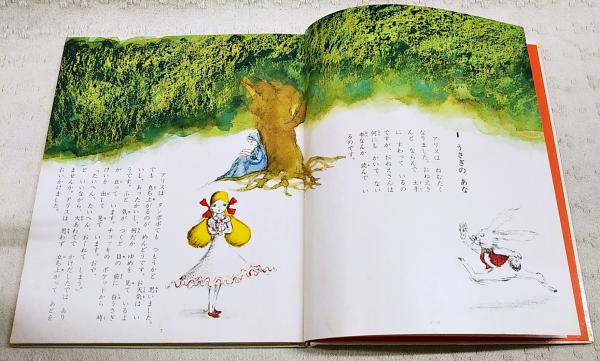 1 うさぎの あな
アリスは ねむたく
なりました。おねえさ
んと ならんで 土手
に すわって いるの
ですが、おねえさんは
何にも かいて ない
本なんか 読んで い
るのです。
アリスは タンポポでも つもうかと 思いました。
でも 立ち上がるのが めんどうです。お天気は い
いし あたたかいし、何だか ゆめを 見て いるよ
うです。ふと 気が つくと 目の 前に 白うさぎ
が 立って います。チョッキの ポケットから 時
けいを 出して 見て います。おや、
たいへん、たいへん、おくれて しまう
ど いいながら、大あわてで かけだしたでは あり
ませんか。アリスは 思わず 立ち上がって、あとを
おいかけました。
7